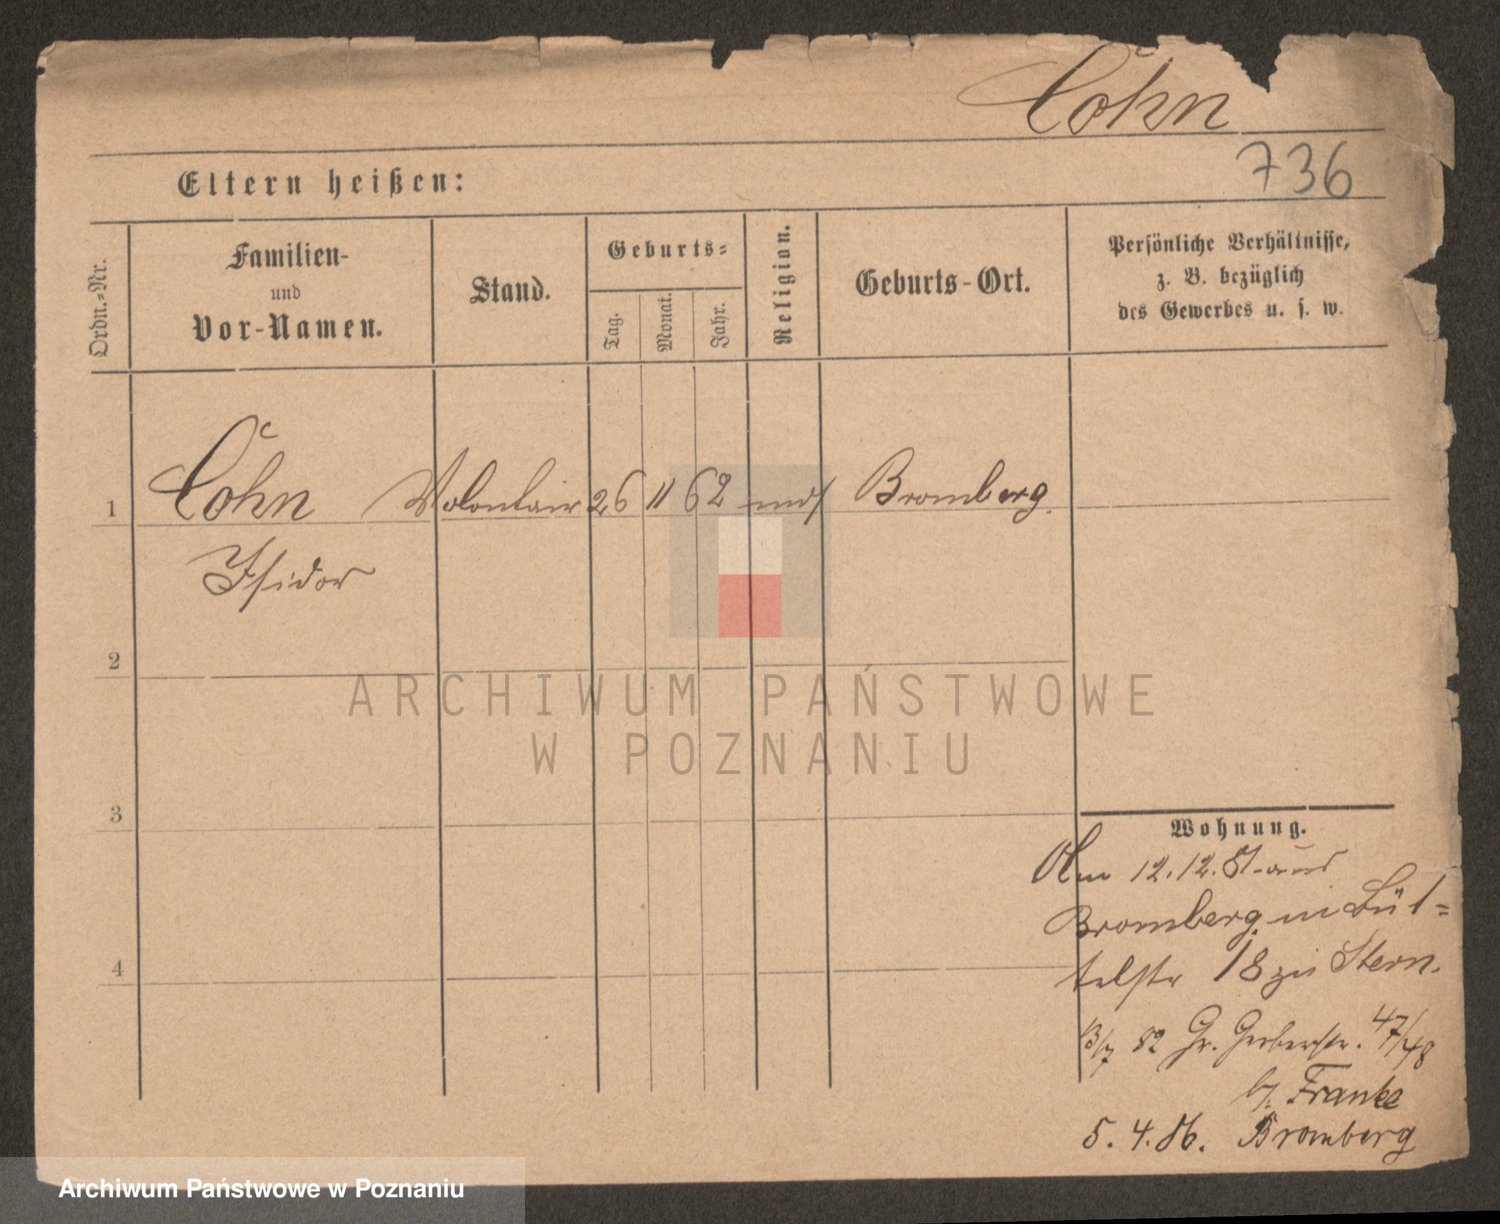 Cohn
736
Eltern heißen:
Ordn.-Nr.
Familien-
und
Vor-Namen.
Stand.
Geburts-
Tag.
Monat.
Jahr.
Religion.
Geburts-Ort.
Persönliche Verhältnisse,
z. B. bezüglich
des Gewerbes u. s. w.
1 Cohn Volontair 26 11 62 mos Bromberg
Isidor
2
3
4
Wohnung.
Am 12.12.81 aus
Bromberg in Büt-
telstr 18 zu Stern.
13/7 82 Gr. Gerberstr. 47/48
b/. Franke
5.4.86. Bromberg
ARCHIWUM PAŃSTWOWE
W POZNANIU
Archiwum Państwowe w Poznaniu